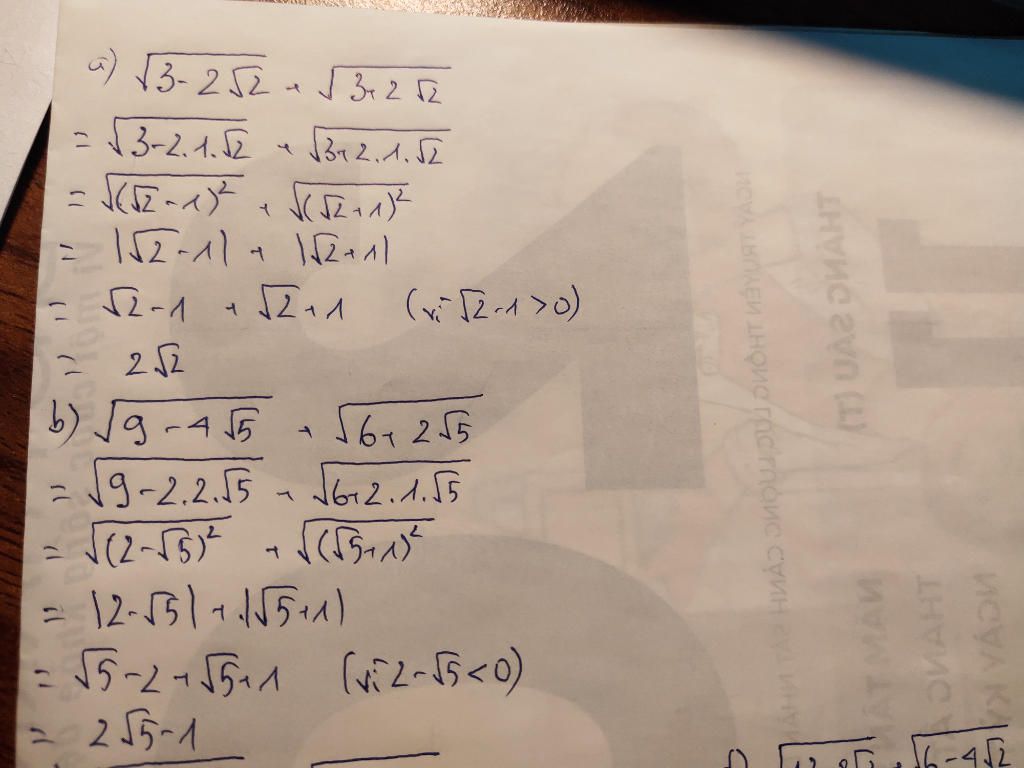 a) √(3-2√2) + √(3+2√2)
= √(3-2.1.√2) + √(3+2.1.√2)
= √((√2-1)²) + √((√2+1)²)
= |√2-1| + |√2+1|
= √2-1 + √2+1 (vì √2-1>0)
= 2√2
b) √(9-4√5) + √(6+2√5)
= √(9-2.2.√5) + √(6+2.1.√5)
= √((2-√5)²) + √((√5+1)²)
= |2-√5| + |√5+1|
= √5-2+√5+1 (vì 2-√5<0)
= 2√5-1
NGÀY TRUYỀN THỐNG LỰC LƯỢNG CẢNH SÁT NHÂN
THÁNG SÁU (T)
NĂM TÂN
THÁNG
NGÀY